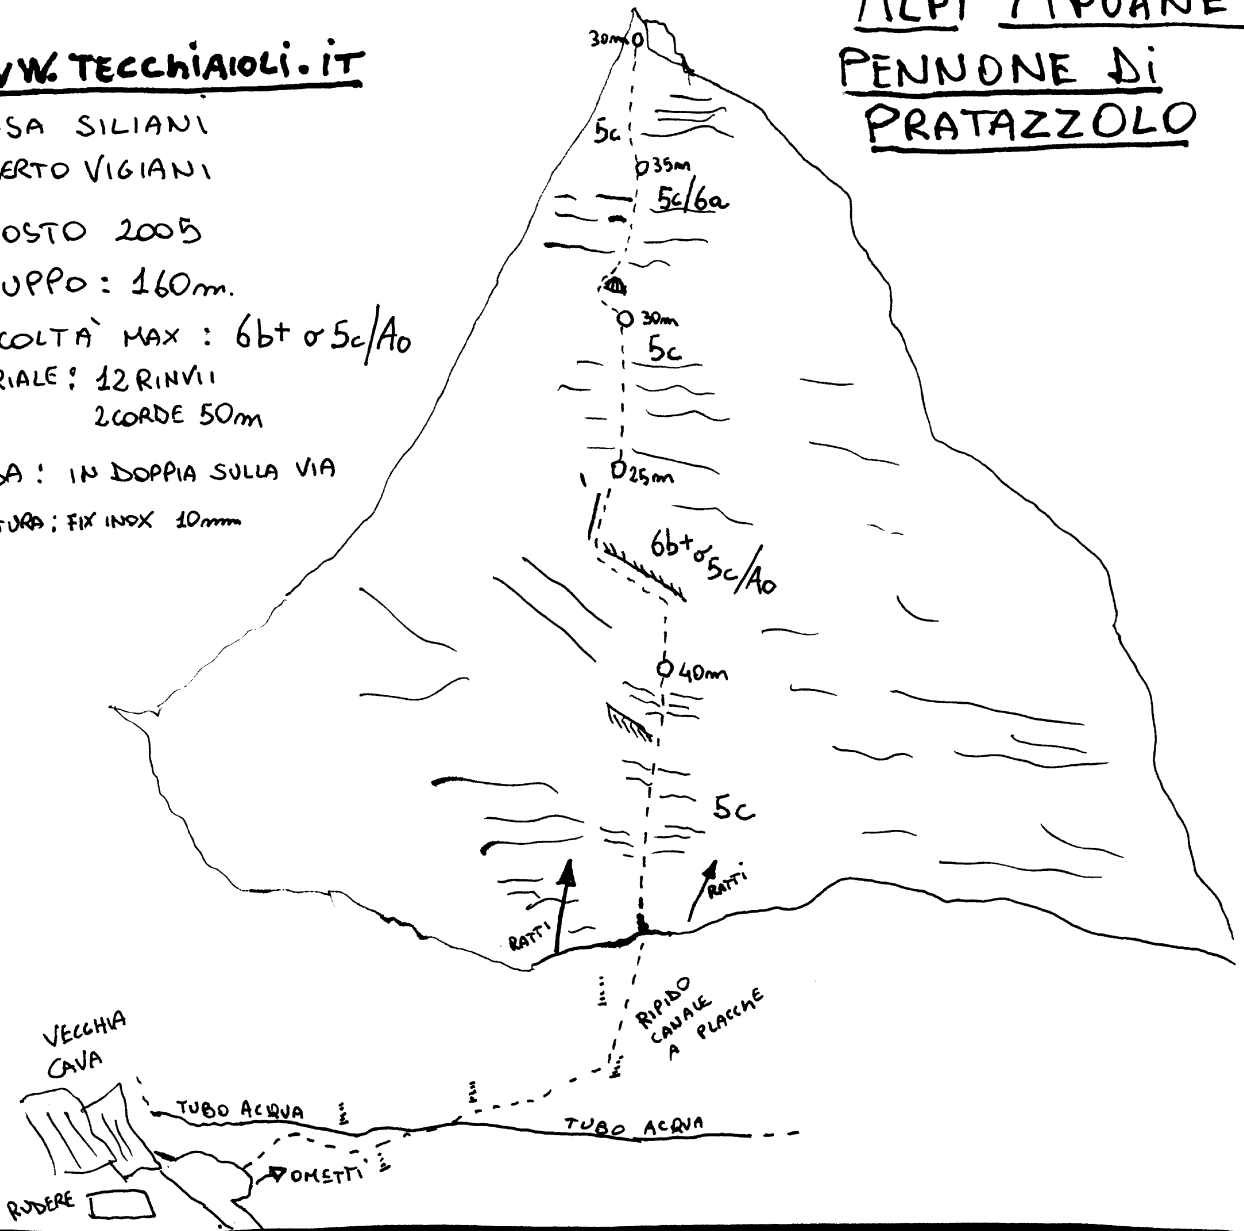 WW.TECCHIAIOLI.IT
SA SILIANI
ERTO VIGIANI
OSTO 2005
UPPO: 160m.
COLTÀ MAX: 6b+ o 5c/A0
RIALE: 12 RINVII
2 CORDE 50m
SA: IN DOPPIA SULLA VIA
TURA: FIX INOX 10mm
ALPI APUANE
PENNONE DI
PRATAZZOLO
30m
5c
35m
5c/6a
30m
5c
25m
6b+ o 5c/A0
40m
5c
RATTI
RATTI
RIPIDO
CANALE
A PLACCHE
VECCHIA
CAVA
TUBO ACQUA
TUBO ACQUA
OMETTI
RUDERE